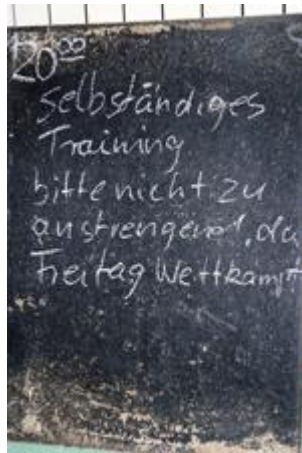 20⁰⁰
selbständiges
Training
bitte nicht zu
anstrengend, da
Freitag Wettkampf